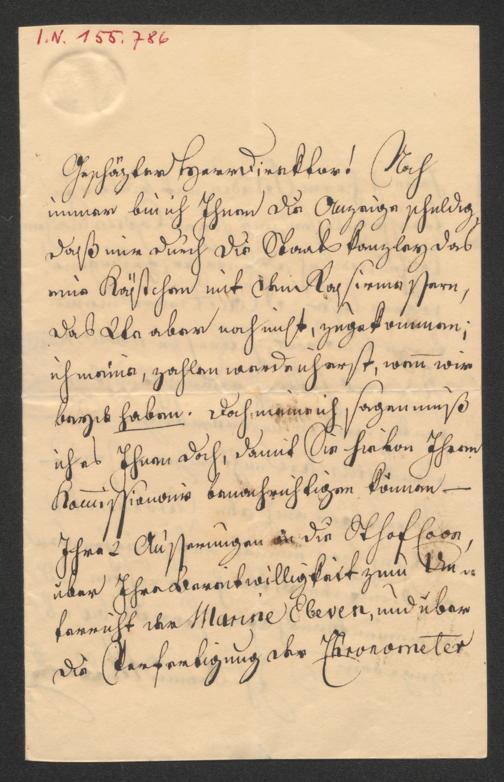 I.N. 155.786
Geschäzter Herr Direktor! Noch
immer bin ich Ihnen die Anzeige schuldig,
daß mir durch die Staatskanzley das
eine Kästchen mit den
das aber noch nicht, zugekommen;
ich meine, zahlen werde ich erst, wenn wir
beyde haben. Doch meine ich, sagen muß
ich es Ihnen doch, damit Sie hievon Ihren
Kommissionair benachrichtigen können —
Ihre 2 Äusserungen an die
über Ihre Bereitwilligkeit zum Un-
terricht der Marine Eleven, und über
die Verfertigung der Chronometer